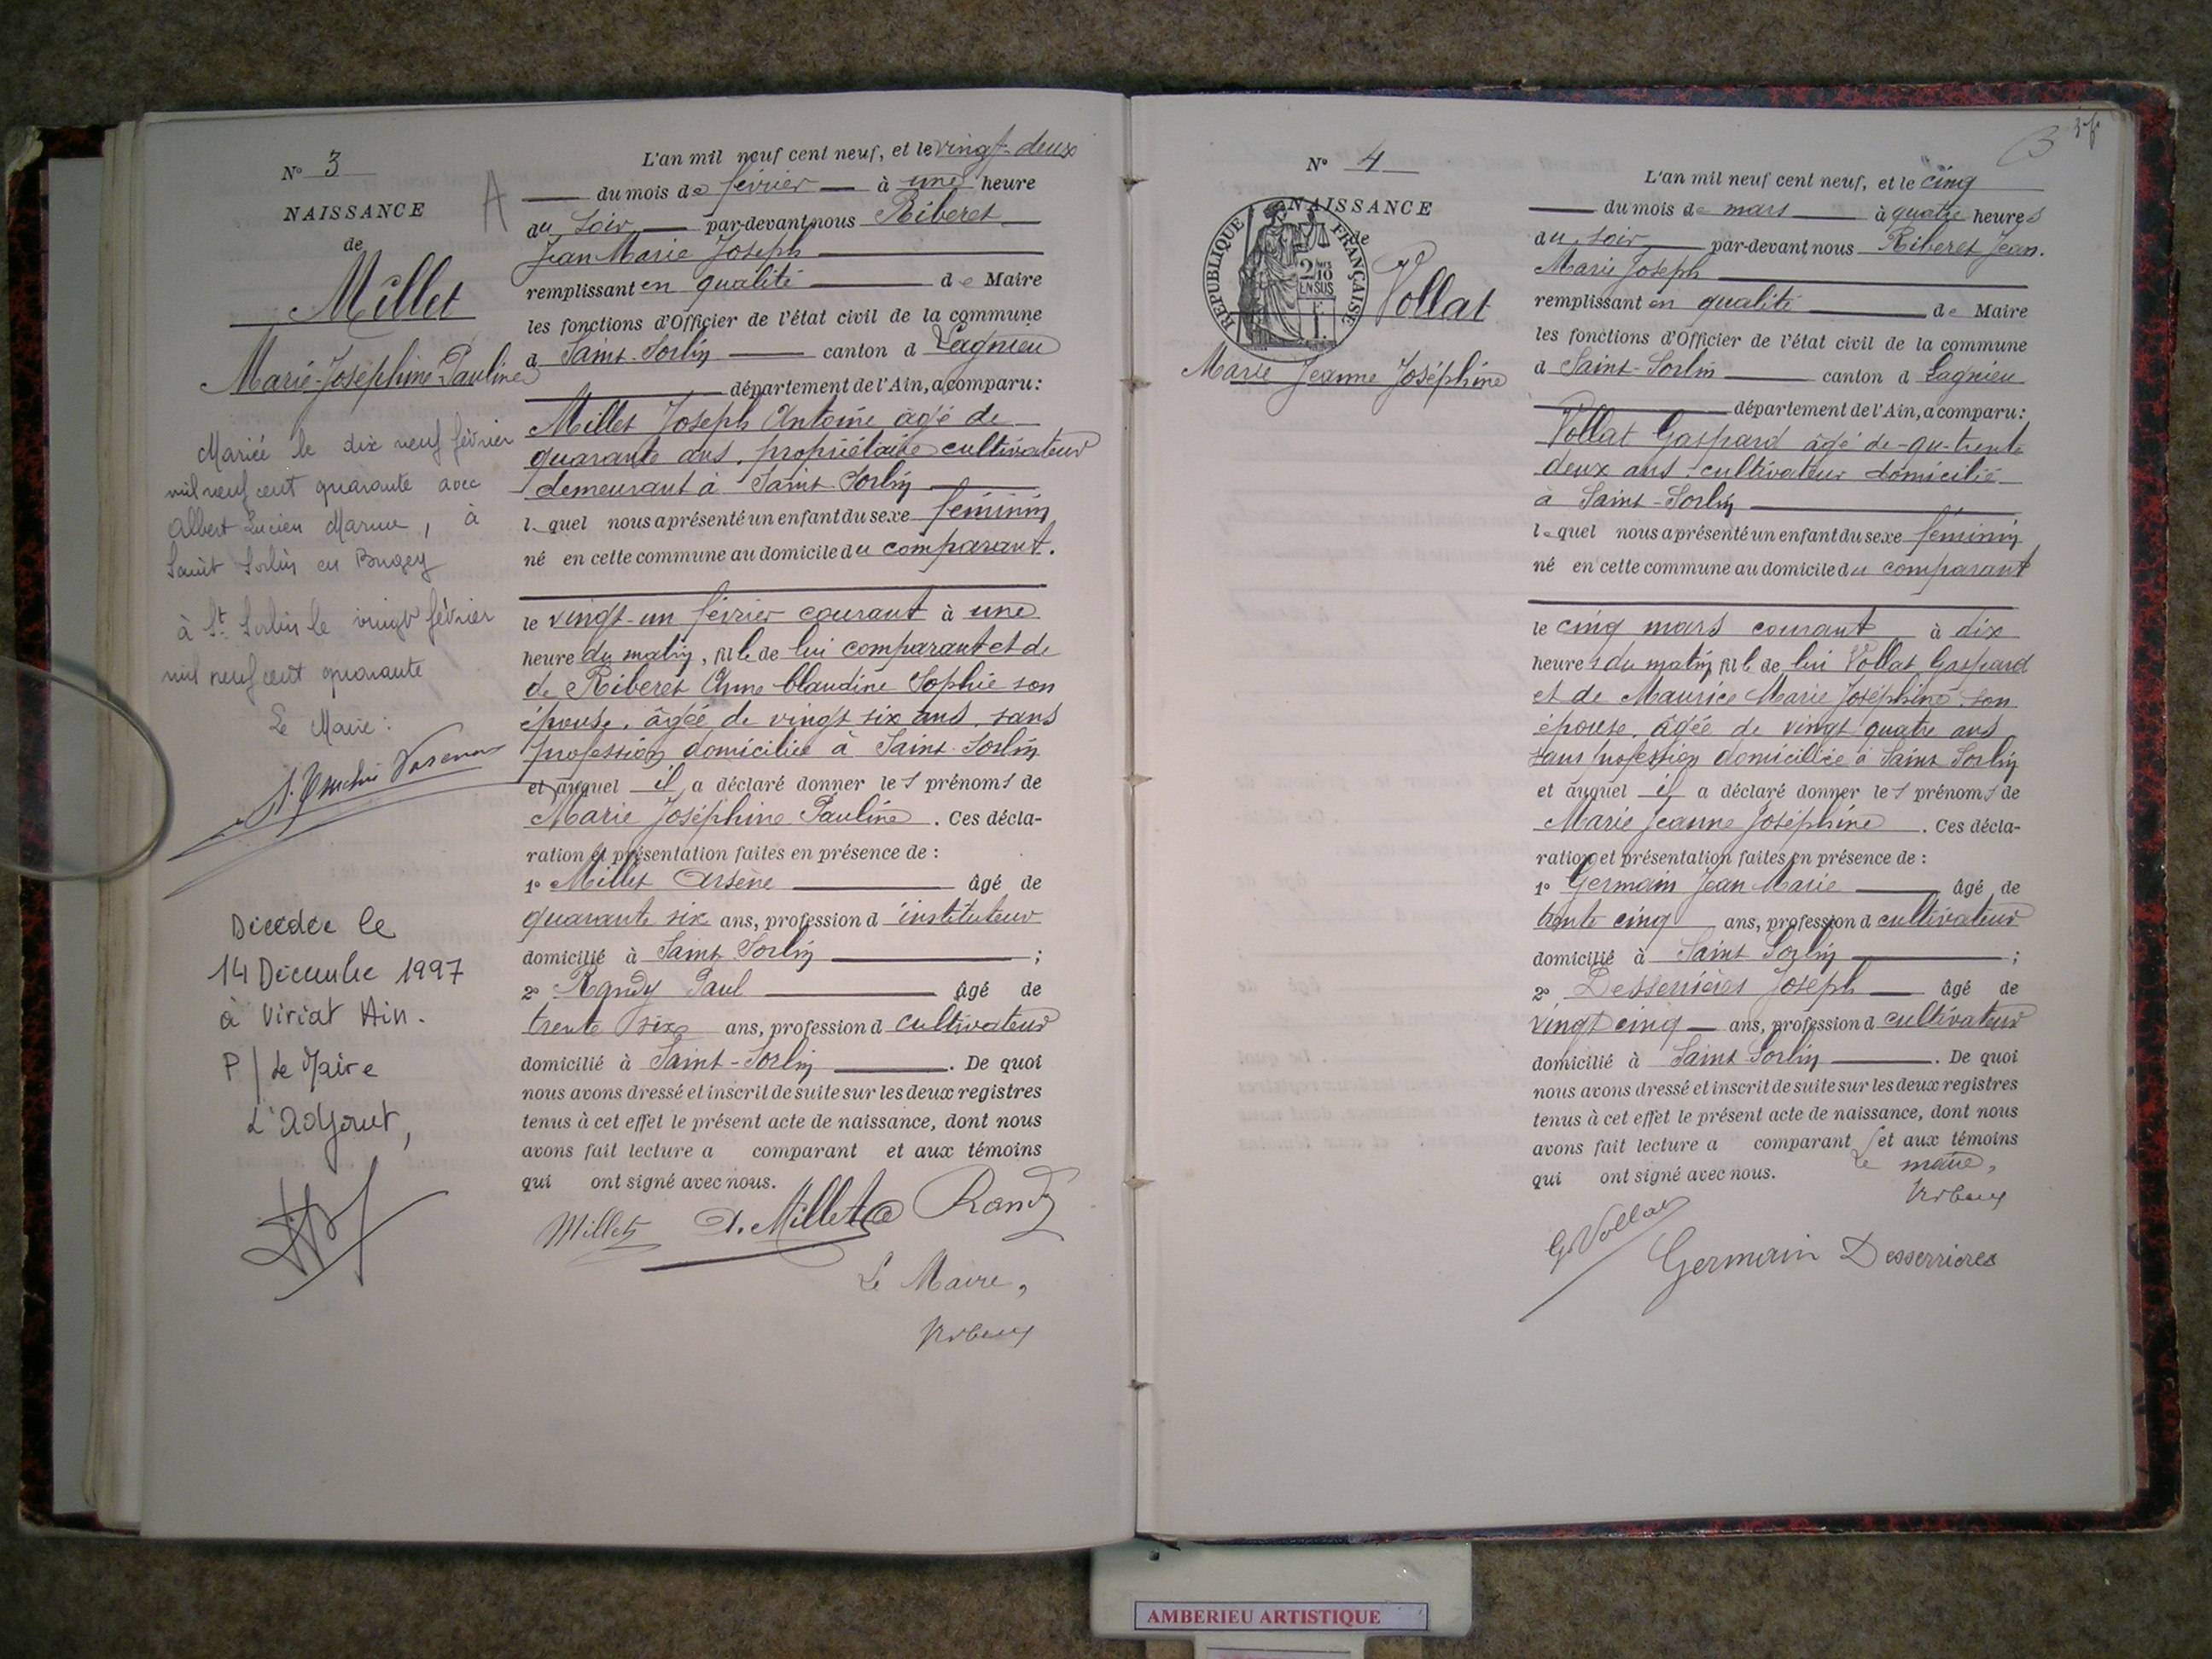 N° 3
NAISSANCE
de
Millet
Marie-Joséphine-Pauline
Mariée le dix neuf février
mil neuf cent quarante avec
Albert Lucien Marme, à
Saint Sorlin en Bugey
à St. Sorlin le vingt février
mil neuf cent quarante
Le Maire:
Décédée le
14 Décembre 1997
à Viriat Ain.
P/ Le Maire
L'Adjoint,
A
L'an mil neuf cent neuf, et le vingt-deux
du mois de février à une heure
du soir par-devant nous Riberet
Jean Marie Joseph
remplissant en qualité de Maire
les fonctions d'Officier de l'état civil de la commune
d Saint-Sorlin canton d Lagnieu
département de l'Ain, a comparu:
Millet Joseph Antoine âgé de
quarante ans, propriétaire cultivateur
demeurant à Saint-Sorlin
lequel nous a présenté un enfant du sexe féminin
né en cette commune au domicile du comparant.
le vingt-un février courant à une
heure du matin, fille de lui comparant et de
de Riberet Anne Claudine Sophie son
épouse, âgée de vingt six ans, sans
profession domiciliée à Saint-Sorlin
et auquel il a déclaré donner les prénoms de
Marie Joséphine Pauline. Ces décla-
ration et présentation faites en présence de :
1° Millet Arsène âgé de
quarante six ans, profession d'instituteur
domicilié à Saint Sorlin ;
2° Randy Paul âgé de
trente six ans, profession d cultivateur
domicilié à Saint-Sorlin. De quoi
nous avons dressé et inscrit de suite sur les deux registres
tenus à cet effet le présent acte de naissance, dont nous
avons fait lecture a comparant et aux témoins
qui ont signé avec nous.
Millet A. Millet Randy
Le Maire,
N° 4
NAISSANCE
de
REPUBLIQUE FRANÇAISE
2/10
EN SUS
Vollat
Marie Jeanne Joséphine
L'an mil neuf cent neuf, et le cinq
du mois de mars à quatre heures
du soir par-devant nous Riberet Jean.
Marie Joseph
remplissant en qualité de Maire
les fonctions d'Officier de l'état civil de la commune
d Saint-Sorlin canton d Lagnieu
département de l'Ain, a comparu:
Vollat Gaspard âgé de-qu-trente
deux ans cultivateur domicilié
à Saint-Sorlin
lequel nous a présenté un enfant du sexe féminin
né en cette commune au domicile du comparant
le cinq mars courant à dix
heures du matin fille de lui Vollat Gaspard
et de Maurice Marie Joséphine son
épouse, âgée de vingt quatre ans
sans profession domiciliée à Saint Sorlin
et auquel il a déclaré donner les prénoms de
Marie Jeanne Joséphine. Ces décla-
ration et présentation faites en présence de :
1° Germain Jean Marie âgé de
trente cinq ans, profession d cultivateur
domicilié à Saint Sorlin ;
2° Desserrières Joseph âgé de
vingt cinq ans, profession d cultivateur
domicilié à Saint Sorlin. De quoi
nous avons dressé et inscrit de suite sur les deux registres
tenus à cet effet le présent acte de naissance, dont nous
avons fait lecture a comparant et aux témoins
qui ont signé avec nous.
Le maire,
G. Vollat
Germain Desserrières
AMBERIEU ARTISTIQUE